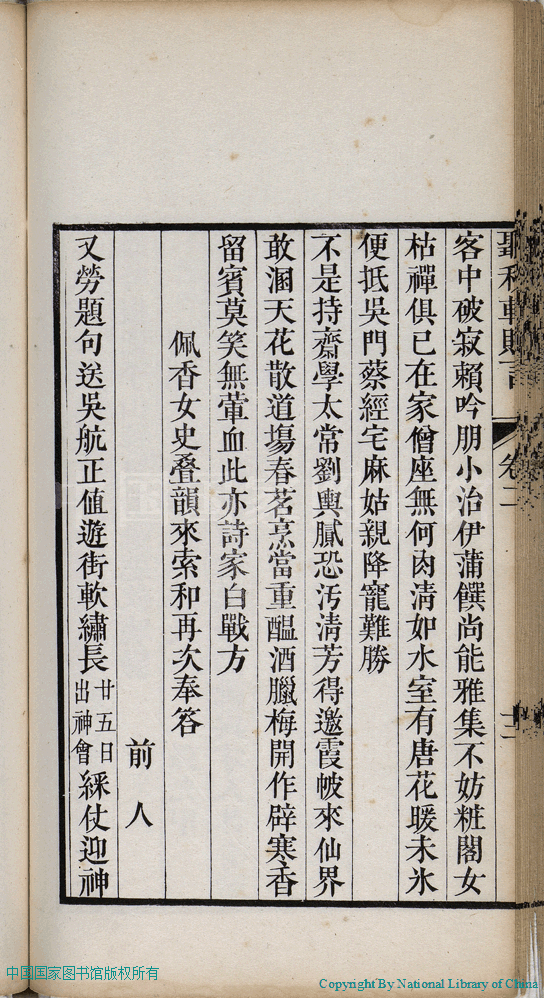 聽秋軒贈言 卷二 十二
客中破寂賴吟朋小治伊蒲饌尚能雅集不妨粧閣女
枯禪俱已在家僧座無何肉清如水室有唐花暖未氷
便抵吳門蔡經宅麻姑親降寵難勝
不是持齋學太常劉輿膩恐汚清芳得邀霞帔來仙界
敢溷天花散道塲春茗烹當重醖酒臘梅開作辟寒香
留賓莫笑無葷血此亦詩家白戰方
佩香女史叠韻來索和再次奉答
前人
又勞題句送吳航正値遊街軟繡長廿五日出神會綵仗迎神
中国国家图书馆版权所有
Copyright By National Library of China